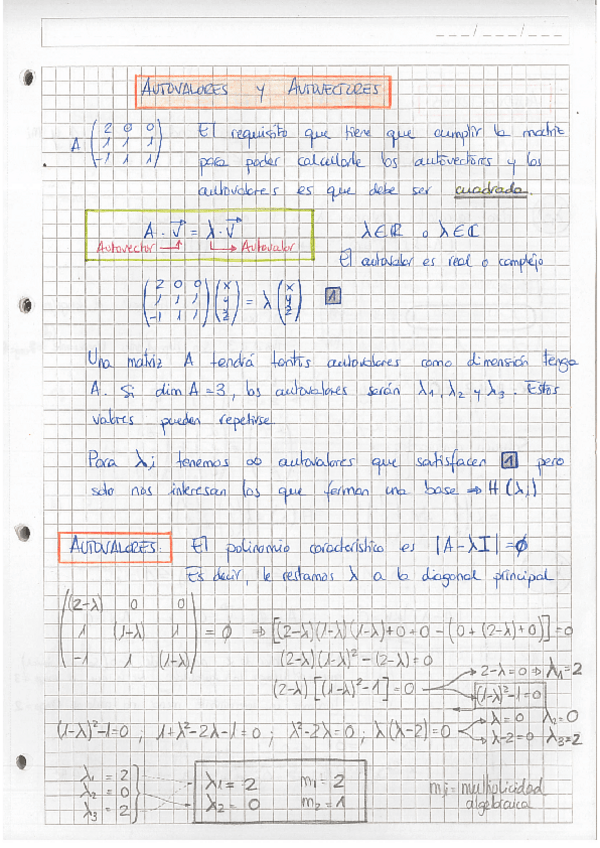 ___/___/___
AUTOVALORES Y AUTOVECTORES
A (2 0 0; 1 1 1; -1 1 1) El requisito que tiene que cumplir la matriz
para poder calcularle los autovectores y los
autovalores es que debe ser cuadrada.
A · v⃗ = λ · v⃗ λ∈ℝ o λ∈ℂ
Autovector Autovalor El autovalor es real o complejo
(2 0 0; 1 1 1; -1 1 1)(x; y; z) = λ(x; y; z) 1
Una matriz A tendrá tantos autovalores como dimensión tenga
A. Si dim A = 3, los autovalores serán λ1, λ2 y λ3. Estos
valores pueden repetirse
Para λi tenemos ∞ autovalores que satisfacen 1 pero
solo nos interesan los que forman una base ⇒ H(λi)
AUTOVALORES: El polinomio característico es |A-λI|=ø
Es decir, le restamos λ a la diagonal principal
|(2-λ) 0 0; 1 (1-λ) 1; -1 1 (1-λ)| = ø ⇒ [(2-λ)(1-λ)(1-λ)+0+0-(0+(2-λ)+0)]=0
(2-λ)(1-λ)²-(2-λ)=0
(2-λ)[(1-λ)²-1]=0 → 2-λ=0 ⇒ λ1=2
→ (1-λ)²-1=0
(1-λ)²-1=0 ; 1+λ²-2λ-1=0 ; λ²-2λ=0 ; λ(λ-2)=0 → λ=0 λ2=0
→ λ-2=0 λ3=2
λ1 = 2
λ2 = 0
λ3 = 2
λ1 = 2 m1 = 2
λ2 = 0 m2 = 1
mi = multiplicidad
algebraica